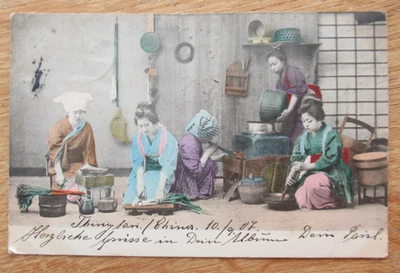 Tsingtau / China. 10./9. 07
Herzliche Grüsse in Dein Album Dein